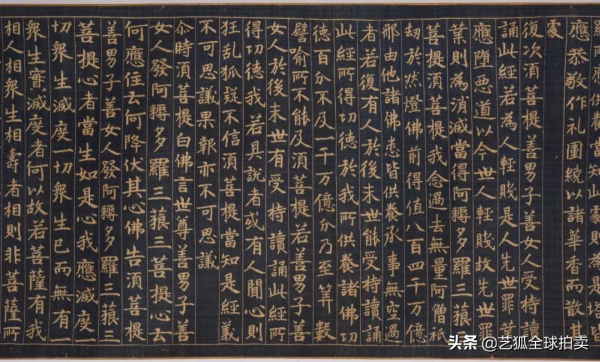 應恭敬作礼圍繞以諸華香而散其
處
復次須菩提善男子善女人受持讀
誦此經若為人輕賤是人先世罪業
應墮惡道以今世人輕賤故先世罪
業則為消滅當得阿耨多羅三藐三
菩提須菩提我念過去無量阿僧祇
劫於然燈佛前得值八百四千万億
那由他諸佛悉皆供養承事無空過
者若復有人於後末世能受持讀誦
此經所得功德於我所供養諸佛功
德百分不及一千万億分乃至筭數
譬喻所不能及須菩提若善男子善
女人於後末世有受持讀誦此經所
得功德我若具說者或有人聞心則
狂乱狐疑不信須菩提當知是經義
不可思議果報亦不可思議
尒時須菩提白佛言世尊善男子善
女人發阿耨多羅三藐三菩提心云
何應住云何降伏其心佛告須菩提
善男子善女人發阿耨多羅三藐三
菩提心者當生如是心我應滅度一
切衆生滅度一切衆生已而無有一
衆生實滅度者何以故若菩薩有我
相人相衆生相壽者相則非菩薩所
头条 @艺狐全球拍卖